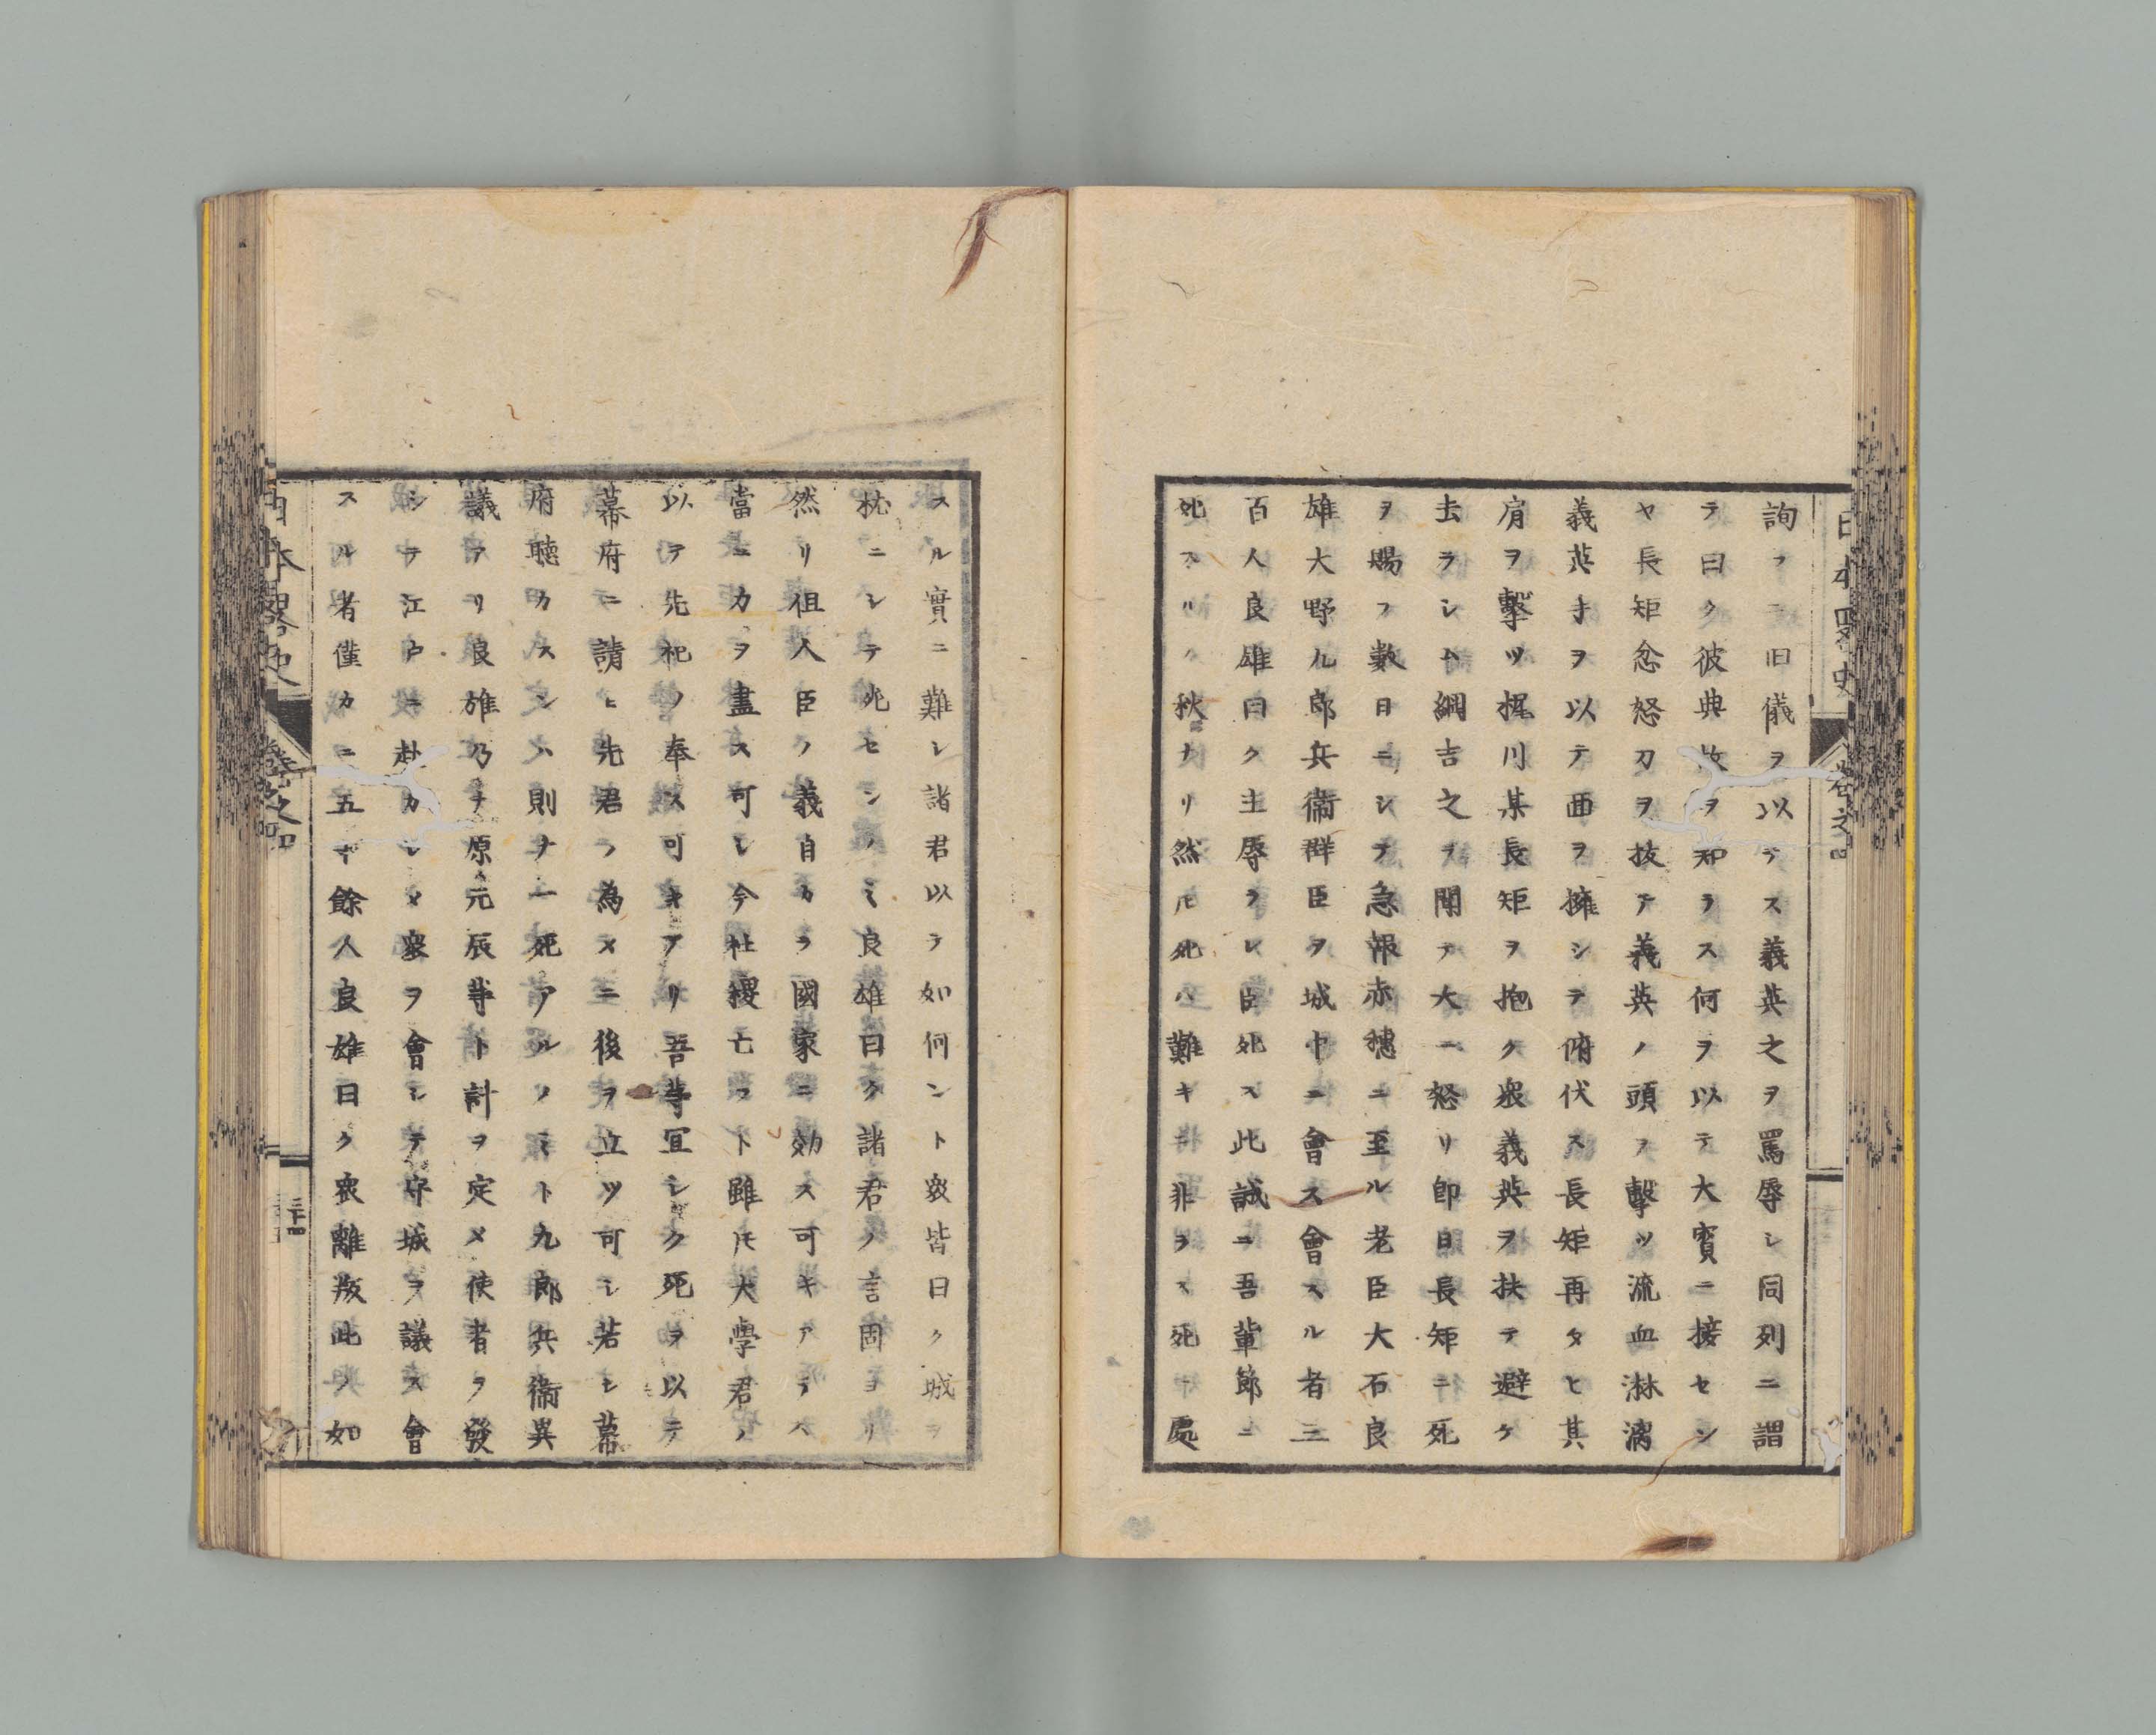 詢フニ旧儀ヲ以テス義英之ヲ罵辱シ同列ニ謂
テ曰ク彼典故ヲ知ラス何ヲ以テ大賓ニ接セシ
ヤ長矩忿怒刀ヲ抜テ義英ノ頭ヲ撃ツ流血淋漓
義英手ヲ以テ面ヲ擁シテ俯伏ス長矩再タヒ其
肩ヲ撃ツ梶川某長矩ヲ抱ク衆義英ヲ扶テ避ケ
去ラシム綱吉之ヲ聞テ大ニ怒リ即日長矩ニ死
ヲ賜フ數日ニシテ急報赤穂ニ至ル老臣大石良
雄大野九郎兵衛群臣ヲ城中ニ會ス會スル者三
百人良雄曰ク主辱ラレ臣死ス此誠ニ吾輩節ニ
死スルノ秋ナリ然𪜈死ハ難キニ非ラス死ニ處
スル實ニ難シ諸君以テ如何ント衆皆曰ク城ヲ
枕ニシテ死センノミ良雄曰ク諸君ノ言固ヨリ
然リ徂人臣ノ義自カラ國家ニ効ス可キアラハ
當ニカヲ盡ス可シ今社稷亡フト雖𪜈大學君ノ
以テ先祀ノ奉ス可キアリ吾等宜シク死ヲ以テ
幕府ニ請ヒ先君ノ為メニ後ヲ立ツ可シ若シ幕
府聴カスンハ則チ一死アルノミト九郎兵衛異
議アリ良雄乃チ原元辰等ト計ヲ定メ使者ヲ發
シテ江戸ニ赴カシメ衆ヲ會シテ守城ヲ議ス會
スル者僅カニ五十餘人良雄曰ク衆離叛此ノ如
日本畧史
卷之四
三十四
日本畧史
卷之四